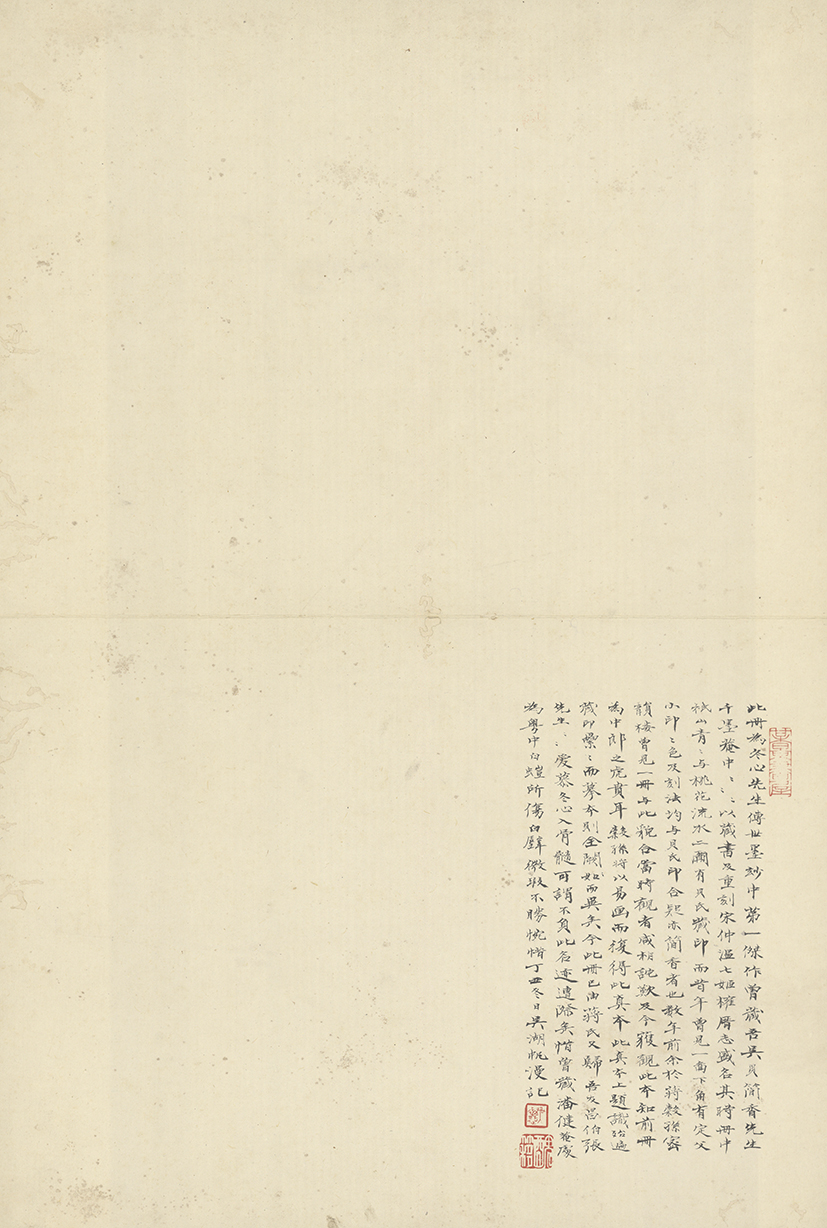 此冊為冬心先生傳世墨妙中第一傑作曾藏吾吳貝簡香先生
千墨菴中〻〻以藏書及重刻宋仲溫七姬權厝志盛名其時冊中
祗山青〻与桃花流水二開有貝氏藏印而昔年曾見一面下角有定父
小印〻色及刻法均与貝氏印合疑亦簡香者也數年前余於蔣穀孫密
韻樓曾見一冊与此貌合當時觀者咸相詫歎及今獲觀此本知前冊
為中郎之虎賁耳穀孫將以易画而復得此真本此真本上題識殆遍
藏印纍〻而摹本則全闕如而異矣今此冊已由蔣氏又歸吾友蔥伯張
先生〻〻愛慕冬心入骨髓可謂不負此名迹遭際矣惜曾藏潘健菴處
為粵中白螘所傷白璧微瑕不勝惋惜丁丑冬日吳湖帆漫記